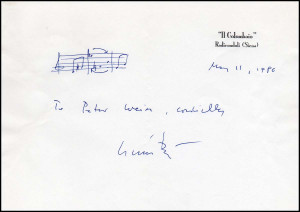 "Il Colombaio"
Radicondoli (Siena)
May 11,
To Peter cordially